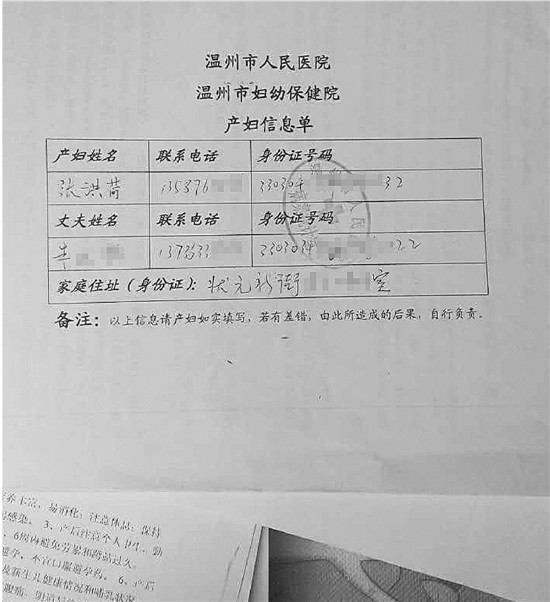 温州市人民医院
温州市妇幼保健院
产妇信息单
产妇姓名 联系电话 身份证号码
张洪苗 135876 330304 32
丈夫姓名 联系电话 身份证号码
137333 330304 22
家庭住址(身份证): 状元新街 室
备注: 以上信息请产妇如实填写,若有差错,由此所造成的后果,自行负责。
易消化;注意休息;保持
感染。 3、产后注意个人卫生,勤
6周内避免劳累和站立过久。
避孕,不宜口服避孕药。 6、产后
及新生儿健康情况和哺乳状况